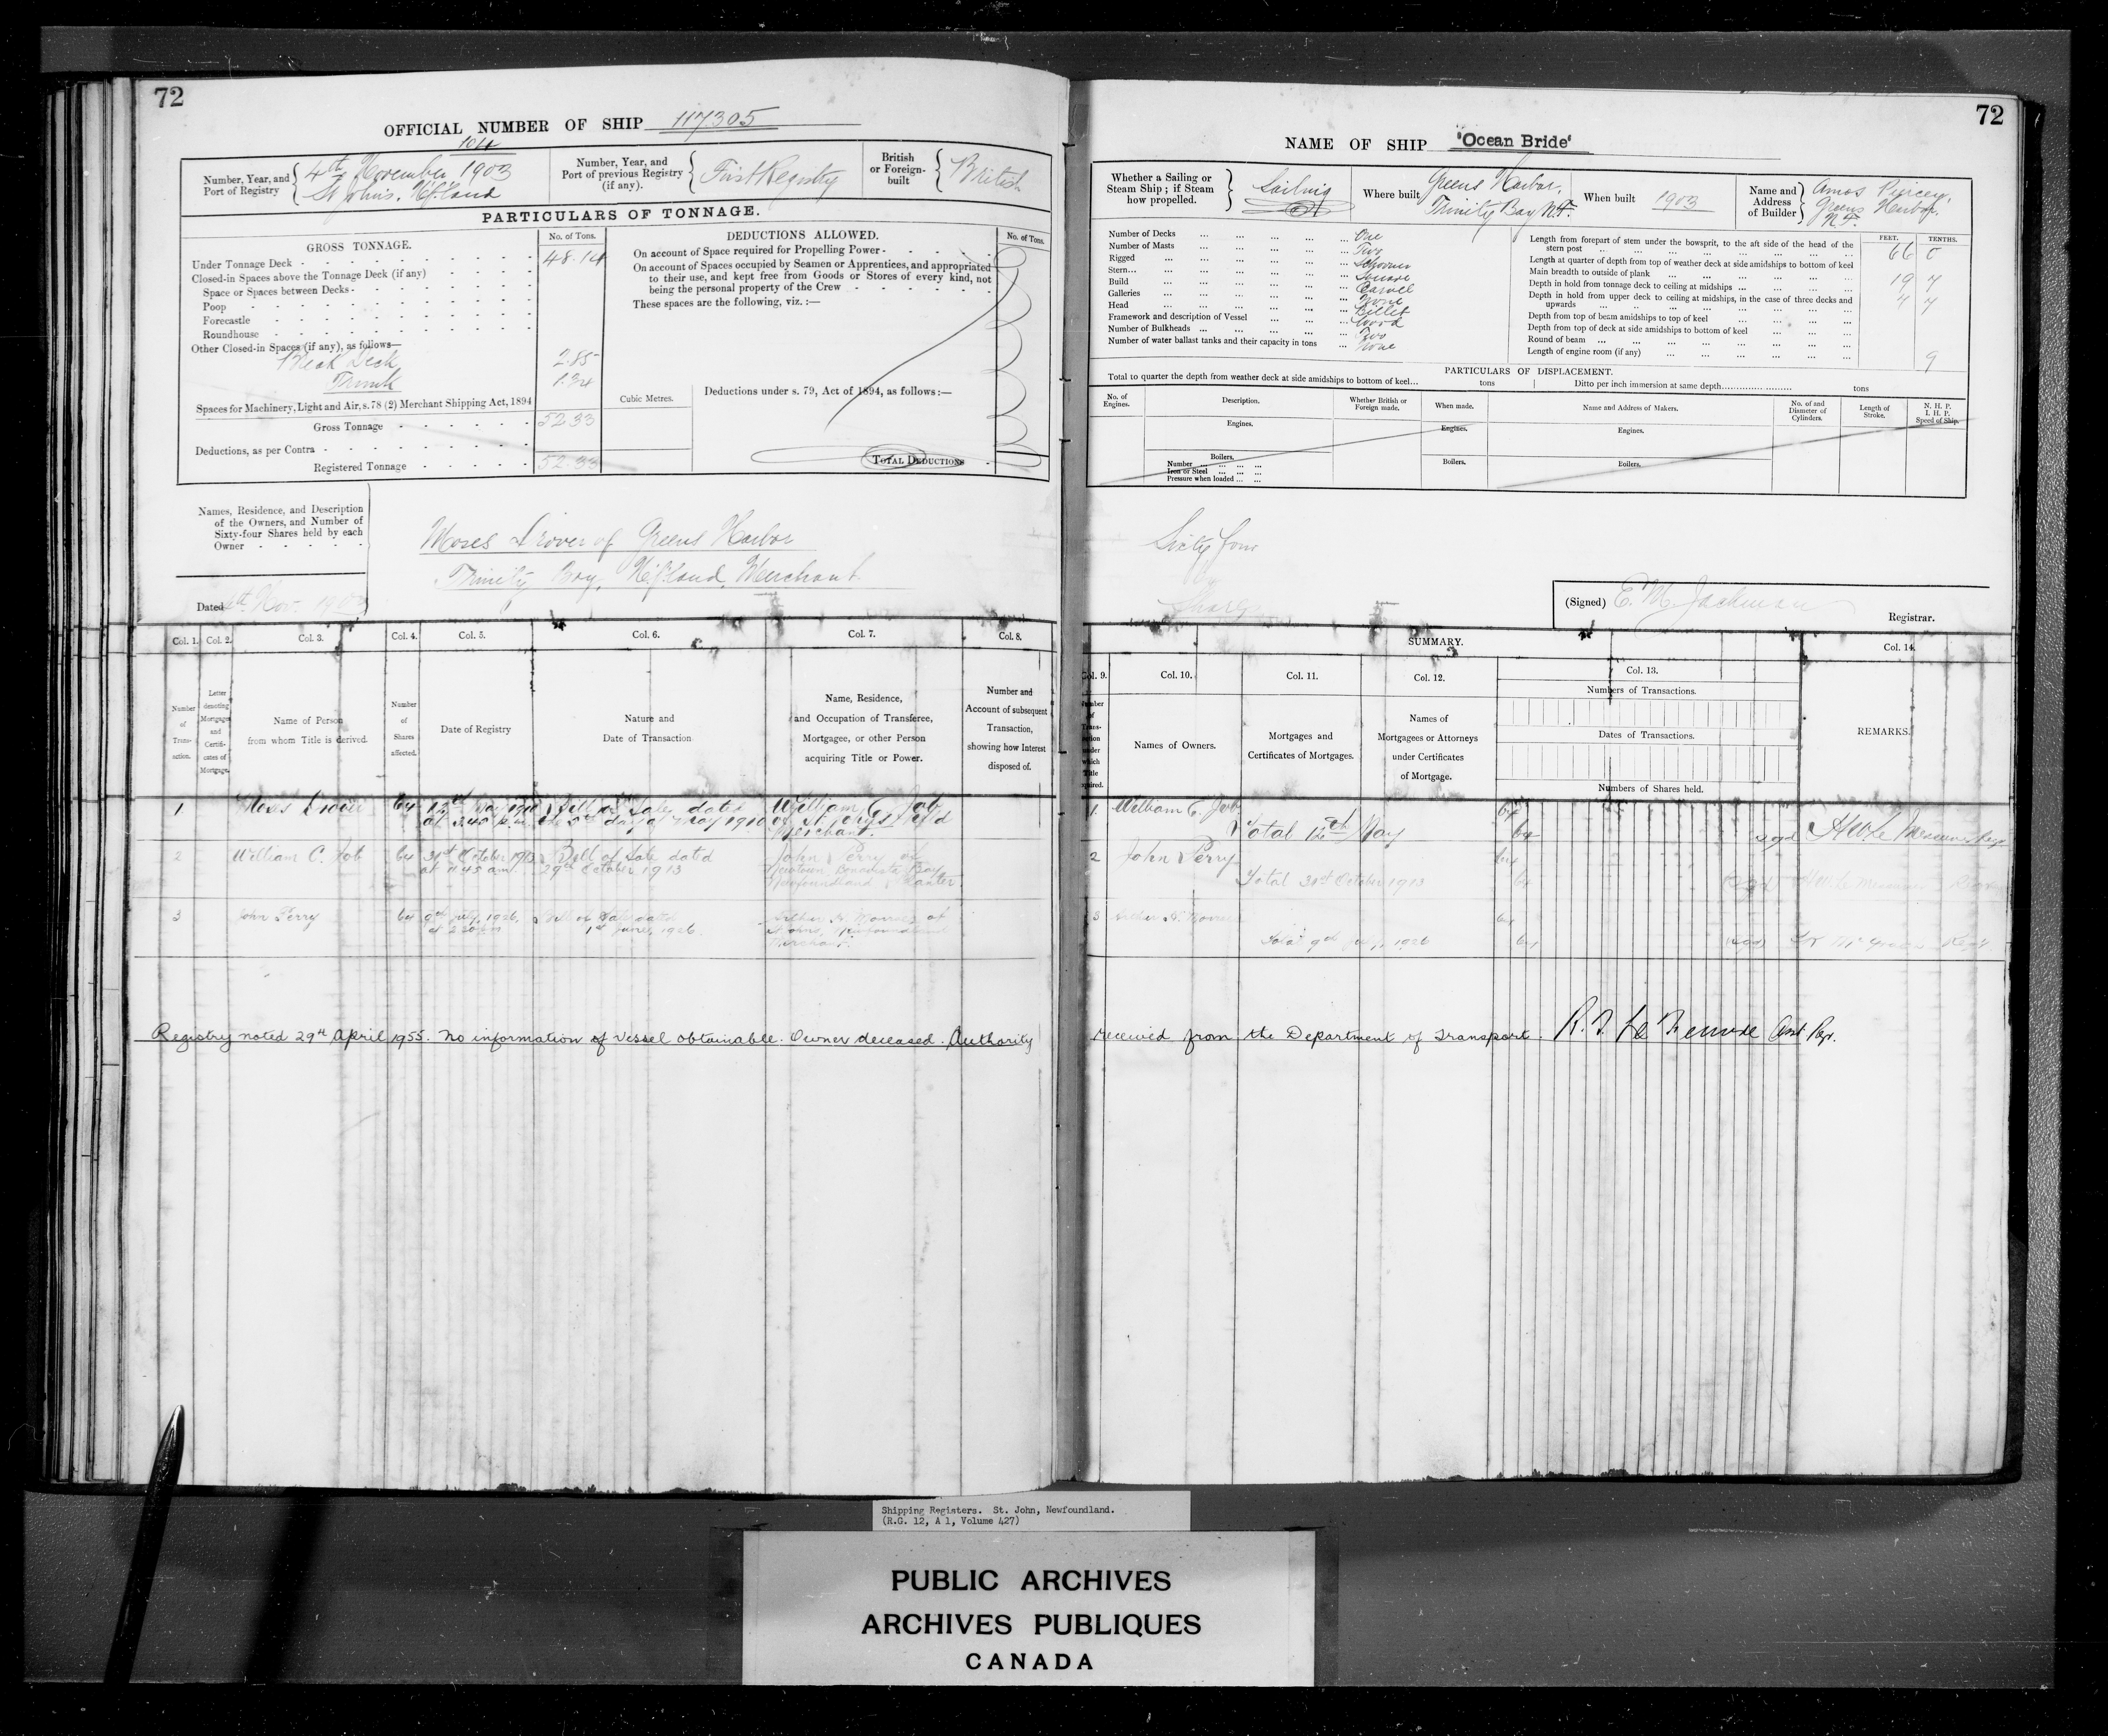 72
OFFICIAL NUMBER OF SHIP 117305
Number, Year, and
Port of Registry
4th November 1903
St John's. Nf.land
Number, Year, and
Port of previous Registry
(if any).
First Registry
British
or Foreign-
built
British
PARTICULARS OF TONNAGE.
GROSS TONNAGE.
No. of Tons.
Under Tonnage Deck 48.14
Closed-in Spaces above the Tonnage Deck (if any)
Space or Spaces between Decks
Poop
Forecastle
Roundhouse
Other Closed-in Spaces (if any), as follows—
Break Deck 2.85
Trunk 1.34
Spaces for Machinery, Light and Air, s. 78 (2) Merchant Shipping Act, 1894
Gross Tonnage 52.33
Deductions, as per Contra
Registered Tonnage 52.33
DEDUCTIONS ALLOWED.
No. of Tons.
On account of Space required for Propelling Power
On account of Spaces occupied by Seamen or Apprentices, and appropriated
to their use, and kept free from Goods or Stores of every kind, not
being the personal property of the Crew
These spaces are the following, viz. :—
Cubic Metres.
Deductions under s. 79, Act of 1894, as follows :—
TOTAL DEDUCTIONS
Names, Residence, and Description
of the Owners, and Number of
Sixty-four Shares held by each
Owner
Moses Drover of Greens Harbor
Trinity Bay, Nf.land, Merchant
Dated 4th Nov. 1903
Col. 1. Col. 2. Col. 3. Col. 4. Col. 5. Col. 6. Col. 7. Col. 8.
Number
of
Trans-
action.
Letter
denoting
Mortgages
and
Certifi-
cates of
Mortgage.
Name of Person
from whom Title is derived.
Number
of
Shares
affected.
Date of Registry
Nature and
Date of Transaction
Name, Residence,
and Occupation of Transferee,
Mortgagee, or other Person
acquiring Title or Power.
Number and
Account of subsequent
Transaction,
showing how Interest
disposed of.
1 Moses Drover 64 12th May 1910 Bill of Sale dated William C. Job
at 3.40 p.m. the 5th day of May 1910 of St. John's Nfld
Merchant.
2 William C. Job 64 31st October 1913 Bill of Sale dated John Perry of
at 11.45 am. 29th October 1913 Newtown, Bonavista Bay,
Newfoundland Planter
3 John Perry 64 9th July, 1926, Bill of Sale dated Arthur H. Monroe of
at 2.30 pm 1st June, 1926. St Johns, Newfoundland
Merchant.
Registry noted 29th April 1955. No information of vessel obtainable. Owner deceased. Authority
72
NAME OF SHIP 'Ocean Bride'
Whether a Sailing or
Steam Ship ; if Steam
how propelled.
Sailing
Where built
Greens Harbor,
Trinity Bay N.F.
When built 1903
Name and
Address
of Builder
Amos Piercey,
Greens Harbor,
N.F.
Number of Decks One
Number of Masts Two
Rigged Schooner
Stern Square
Build Carvel
Galleries None
Head Billet
Framework and description of Vessel Wood
Number of Bulkheads Two
Number of water ballast tanks and their capacity in tons None
FEET. TENTHS.
Length from forepart of stem under the bowsprit, to the aft side of the head of the
stern post 66 0
Length at quarter of depth from top of weather deck at side amidships to bottom of keel
Main breadth to outside of plank 19 7
Depth in hold from tonnage deck to ceiling at midships 7 7
Depth in hold from upper deck to ceiling at midships, in the case of three decks and
upwards
Depth from top of beam amidships to top of keel
Depth from top of deck at side amidships to bottom of keel
Round of beam 9
Length of engine room (if any)
PARTICULARS OF DISPLACEMENT.
Total to quarter the depth from weather deck at side amidships to bottom of keel... tons Ditto per inch immersion at same depth tons
No. of
Engines.
Description.
Whether British or
Foreign made.
When made.
Name and Address of Makers.
No. of and
Diameter of
Cylinders.
Length of
Stroke.
N. H. P.
I. H. P.
Speed of Ship.
Engines. Engines. Engines.
Boilers. Boilers. Boilers.
Number
Iron or Steel
Pressure when loaded
Sixty four
Shares
(Signed) E. M. Jackman
Registrar.
SUMMARY.
Col. 9. Col. 10. Col. 11. Col. 12. Col. 13. Col. 14.
Number
of
Trans-
action
under
which
Title
acquired.
Names of Owners.
Mortgages and
Certificates of Mortgages.
Names of
Mortgagees or Attorneys
under Certificates
of Mortgage.
Numbers of Transactions.
Dates of Transactions.
Numbers of Shares held.
REMARKS.
1 William C. Job 64
Total 12th May 64 H W Le Messurier
2 John Perry 64
Total 31st October 1913 64
3 Arthur H. Monroe 64
Total 9th July 1926 64
received from the Department of Transport.
Shipping Registers. St. John, Newfoundland.
(R.G. 12, A 1, Volume 427)
PUBLIC ARCHIVES
ARCHIVES PUBLIQUES
CANADA